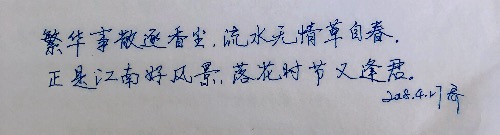 繁华事散逐香尘，流水无情草自春，
正是江南好风景，落花时节又逢君。